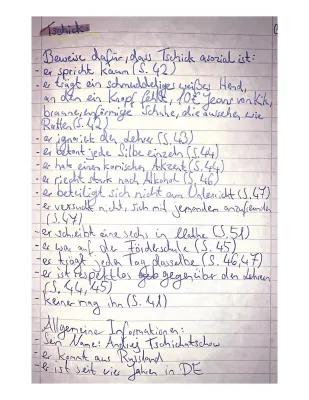 Tschick
Beweise dafür, dass Tschick asozial ist:
- er spricht kaum (S. 42)
- er trägt ein schmuddeliges weißes Hemd,
an den ein Knopf fehlt, 10€ Jeans von Kik,
braune, unförmige Schuhe, die aussehen wie
Ratten (S. 42)
- er ignoriert den Lehrer (S. 43)
- er betont jede Silbe einzeln (S. 44)
- er hat einen komischen Akzent (S. 44)
- er riecht stark nach Alkohol (S. 46)
- er beteiligt sich nicht am Unterricht (S. 47)
- er versucht nicht, sich mit jemanden anzufreunden
(S. 47)
- er schreibt eine sechs in Mathe (S. 51)
- er war auf der Förderschule (S. 45)
- er trägt jeden Tag dasselbe (S. 46, 47)
- er ist respektlos gegenüber den Lehrern
(S. 44, 45)
- keiner mag ihn (S. 41)
Allgemeine Informationen:
- Sein Name: Andrej Tschichatschow
- er kommt aus Russland
- er ist seit vier Jahren in DE